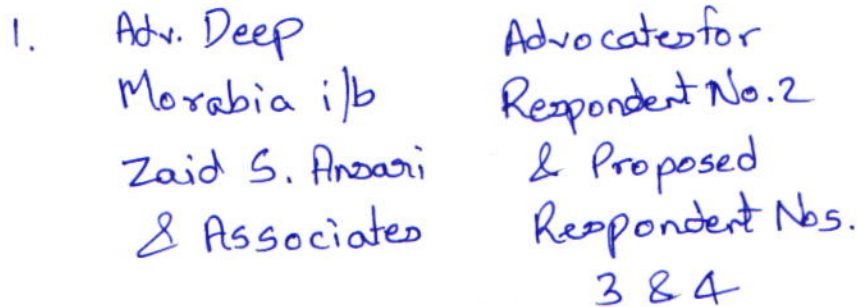 1. Adv. Deep
Morabia i/b
Zaid S. Ansari
& Associates
Advocates for
Respondent No. 2
& Proposed
Respondent Nos.
3 & 4